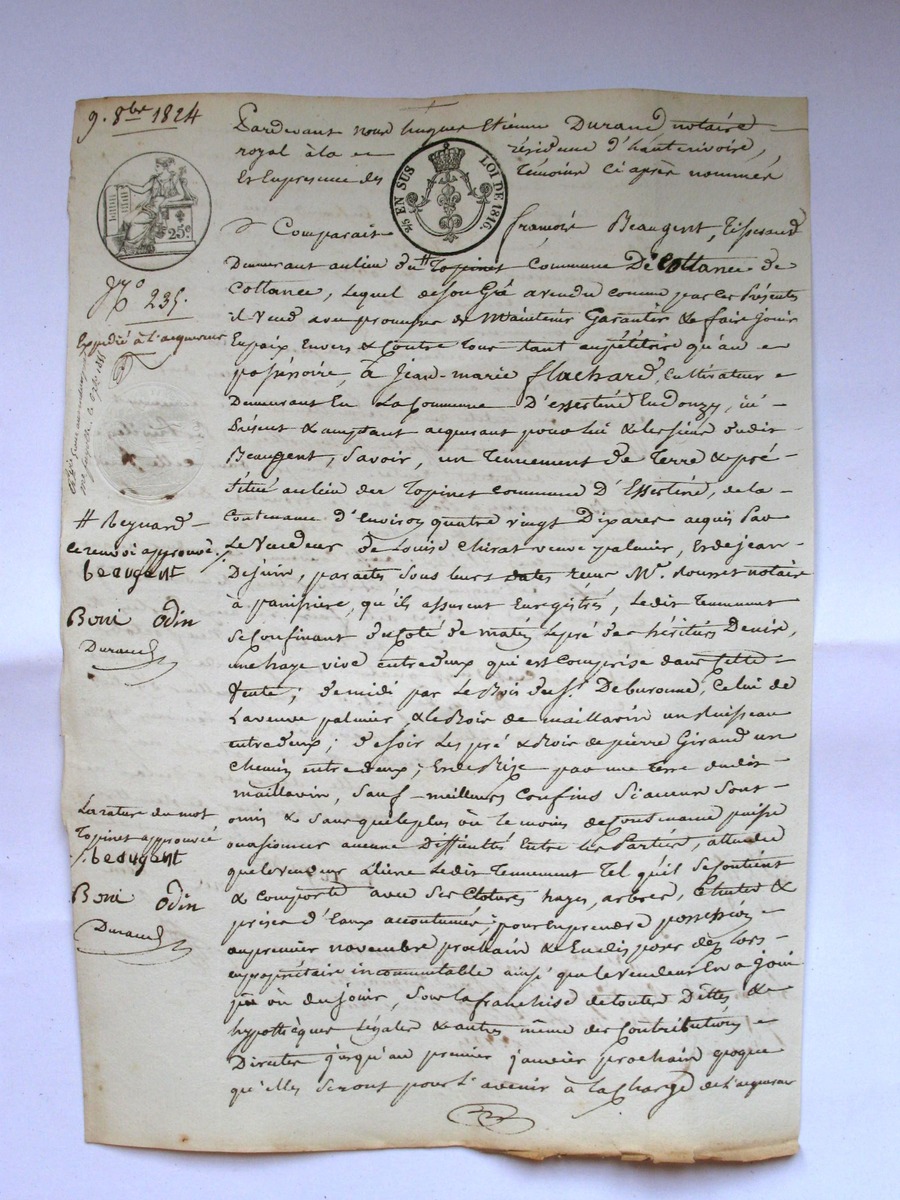 9. 8bre 1824
25c
No 235.
Expédié à l'acquereur
# Reynard
ce renvoi approuvé
beaugent
Boni Odin
Durand
La rature du mot
Topinet approuvée
beaugent
Boni Odin
Durand
Pardevant nous hugues Etienne Durand, notaire
royal à la résidence d'hauterivoire,
25 EN SUS LOI DE 1816.
Et En presence des témoins Ci après nommés
Comparait françois Beaugent, tisserand
Demeurant au lieu du # Topinet Commune De Cottance de
Cottance, lequel de son Gré a vendu comme par ces présentes
il vend avec promesse de Maintenir Garantir & faire jouir
En paix Envers & Contre tous tant au pétitoire qu'au
possessoire, à Jean-marie flachard, Cultivateur
Demeurant En La Commune D'essertine En donzy, ici
Présent & acceptant acquerant pour lui & les siens dudit
Beaugent, Savoir, un tennement de terre & pré
Situé au lieu des Topinet Commune D'Essertine, de la
Contenance d'Environ quatre vingt Dix ares acquis par
Le Vendeur de Louise Chirat veuve palmier, Et de jean
par actes sous leurs dates reçus Me. rousset notaire
à panissiere, qu'ils assurent Enregistrés, Ledit tennement
Se Confinant du Coté de matin le pré des héritiers Denis,
une haye vive entre deux qui est Comprise dans cette
Vente; de midi par Le Bois du Sr. De buronne, Celui de
La veuve palmier, & le Bois de maillavin un Ruisseau
entre deux; de soir Les pré & Bois de pierre Giraud un
Chemin entre deux; Et de Bize par une terre dudit
maillavin, Sauf meilleurs Confins Si aucun Sont
omis & Sans que le plus ou le moins de Contenance puisse
occasionner aucune difficultés Entre les Parties, attendu
que le vendeur aliène Ledit tennement Tel qu'il Se Contient
& Comporte avec Ses Clotures hayes, arbres, &
prises d'Eaux accoutumés; pour En prendre possession
au premier novembre prochain & En disposer dès lors
en propriétaire incommutable ainsi que le vendeur En a Joui
pu ou du jouir, Sous la franchise de toutes Dettes &
hypothèques Légales & autres même des Contributions
Directes jusqu'au premier janvier prochain époque
qu'elles Seront pour L'avenir à la Charge de L'acquereur